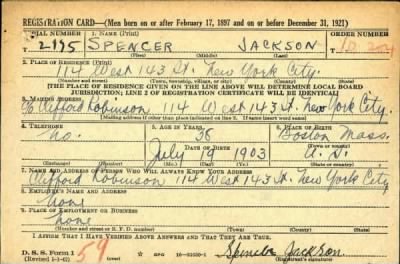 REGISTRATION CARD—(Men born on or after February 17, 1897 and on or before December 31, 1921)
SERIAL NUMBER 1. NAME (Print) ORDER NUMBER
2195 SPENCER JACKSON 10204
(First) (Middle) (Last)
2. PLACE OF RESIDENCE (Print)
114 West 143 St. New York City.
(Number and street) (Town, township, village, or city) (County) (State)
[THE PLACE OF RESIDENCE GIVEN ON THE LINE ABOVE WILL DETERMINE LOCAL BOARD
JURISDICTION; LINE 2 OF REGISTRATION CERTIFICATE WILL BE IDENTICAL]
3. MAILING ADDRESS
c/o Clifford Robinson 114 West 143 St. New York City.
[Mailing address if other than place indicated on line 2. If same insert word same]
4. TELEPHONE 5. AGE IN YEARS 6. PLACE OF BIRTH
no. 38 Boston Mass.
DATE OF BIRTH (Town or county)
July 19 1903
(Exchange) (Number) (Mo.) (Day) (Yr.) (State or country)
7. NAME AND ADDRESS OF PERSON WHO WILL ALWAYS KNOW YOUR ADDRESS
Clifford Robinson 114 West 143 St. New York City
8. EMPLOYER'S NAME AND ADDRESS
none
9. PLACE OF EMPLOYMENT OR BUSINESS
none
(Number and street or R. F. D. number) (Town) (County) (State)
I AFFIRM THAT I HAVE VERIFIED ABOVE ANSWERS AND THAT THEY ARE TRUE.
D. S. S. Form 1 59 GPO Spencer Jackson
(Revised 1-3-42) (Registrant's signature)